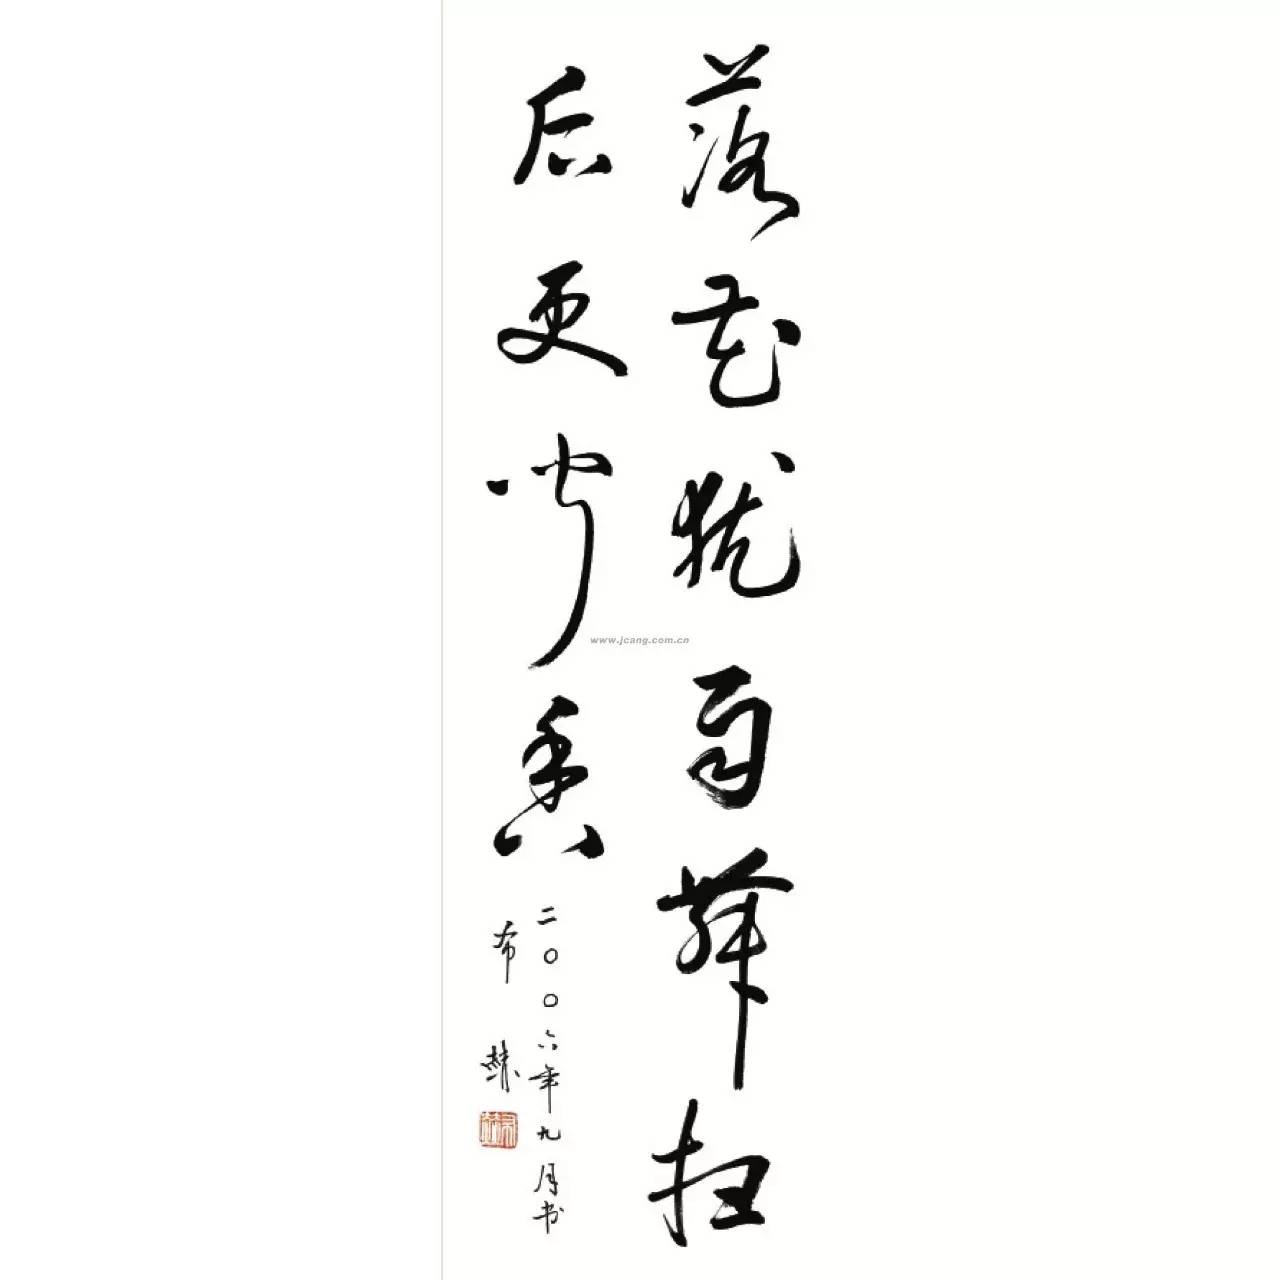 落花犹自舞扫
后更闻香
二〇〇六年九月书
布赫
www.jcang.com.cn